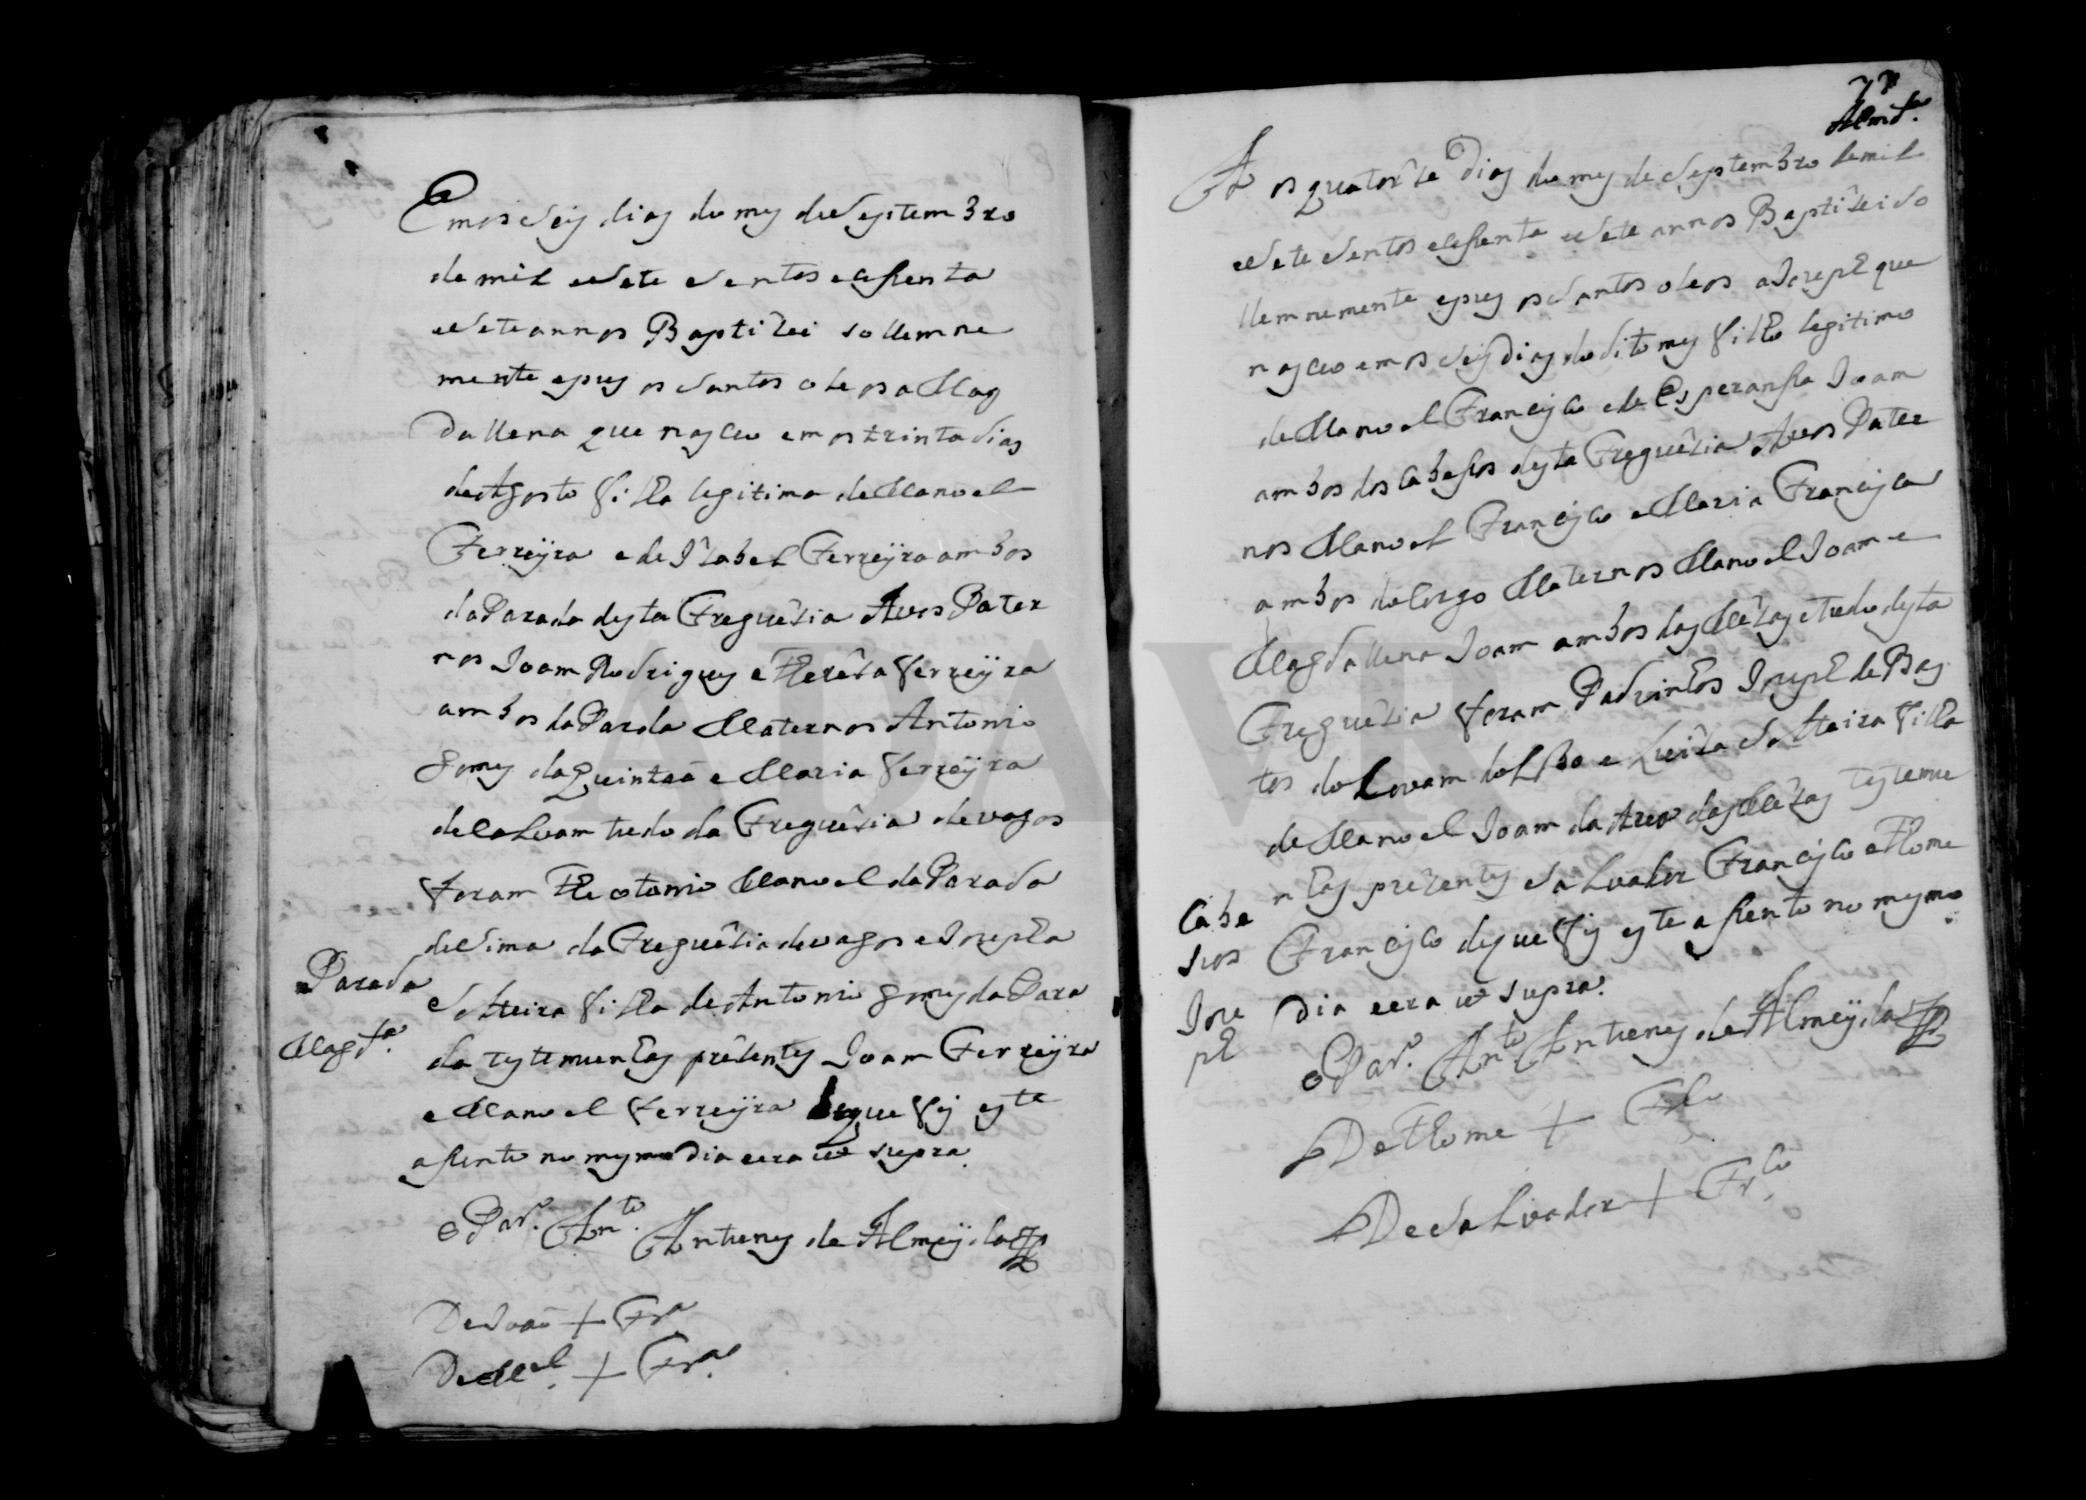 Em os seis dias do mes de Septembro
de mil e sete sentos e assenta
e sete annos Baptizei sollemne
mente e pus os santos oleos a Mag
dallena que nasceo em os trinta dias
de Agosto filha legitima de Manoel
Ferreyra e de Izabel Ferreyra ambos
da Parada desta Freguezia Avos Pater
nos Joam Rodrigues e Thereza Ferreyra
ambos da Parda Maternos Antonio
Gomes da Quintaã e Maria Ferreyra
de Calvam tudo da Freguezia de vagos
foram Theotonio Manoel da Parada
de Sima da Freguezia de vagos e Josepha
Solteira filha de Antonio Gomes da Para
da testemunhas prezentes Joam Ferreyra
e Manoel Ferreyra de que fis este
assento no mesmo dia e era ut supra
o Par.º Ant.º Antunes de Almeyda
De Joaõ + Frª
De M.el + Fr.ª
Parada
Magd.ª
77
Almd.ª
Aos quatorze Dias do mes de Septembro de mil
e sete sentos e assenta e sete annos Baptizei so
llemnemente e pus os santos oleos a Joseph que
nasceo em os seis Dias do dito mes filho legitimo
de Manoel Francisco e de Esperansa Joam
ambos dos Cabessos desta Freguezia Avos Pater
nos Manoel Francisco e Maria Francisca
ambos do Corgo Maternos Manoel Joam e
Magdallena Joam ambos das Mezas e tudo desta
Freguezia foram Padrinhos Joseph de Bas
tos do Covam do Lobo e Luiza Solteira filha
de Manoel Joam da Areo das Mezas testemu
nhas prezentes Salvador Francisco e Thome
Francisco de que fis este assento no mesmo
Dia e era ut supra.
o Par.º Ant.º Antunes de Almeyda
De Thome + Fr.co
De Salvador + Fr.co
Cabe
ssos
Jose
ph
ADAVR